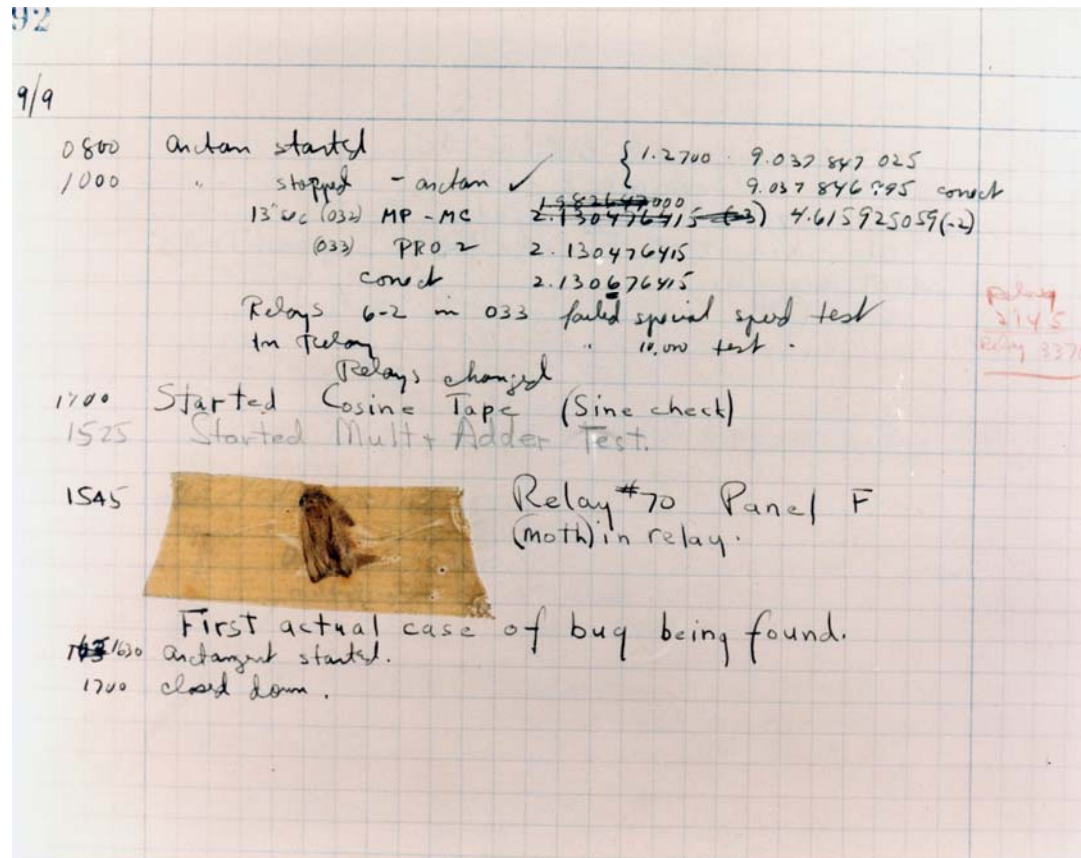 92
9/9
0800 antan started { 1.2700 9.037 847 025
1000 " stopped - antan ✓ 9.037 846 795 conect
13" uc (032) MP - MC 1.982647000 2.130476415 (-3) 4.615925059(-2)
(033) PRO 2 2.130476415
conect 2.130676415
Relays 6-2 in 033 failed special speed test
In Relay " 10,000 test .
Relays changed
Relay
2145
Relay 337
1700 Started Cosine Tape (Sine check)
1525 Started Mult + Adder Test.
1545 Relay #70 Panel F
(moth) in relay.
First actual case of bug being found.
1630 antangent started.
1700 closed down.